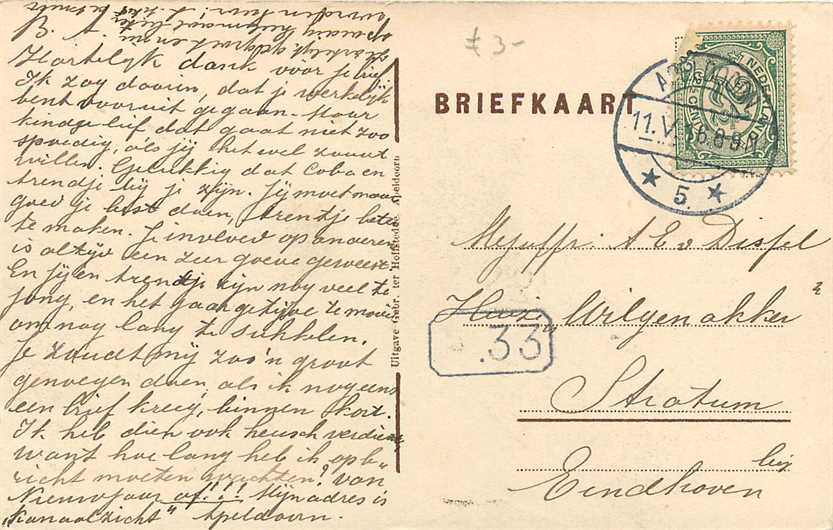 B. A.
Hartelijk dank voor je brief
Ik zag daarin, dat je werkelijk
bent vooruit gegaan. Maar
kindje lief dat gaat niet zoo
spoedig, als jij het wel zoudt
willen. Gelukkig dat Coba en
trendje bij je zijn. Jij moet maar
goed je best doen, trendje beter
te maken. Je invloed op anderen
is altijd een zeer goeve geweest.
En jij en trendje zijn nog veel te
jong, en het jaargetijde te mooi
om nog lang te sukkelen.
Je zoudt mij zoo'n groot
genoegen doen, als ik nog eens
een brief kreeg, binnen kort.
Ik heb dien ook heusch verdiend
want hoe lang heb ik op be-
richt moeten wachten? Van
Nieuwjaar af!!! Mijn adres is
"Kanaalzicht" Apeldoorn.
Uitgave Gebr. ter Hoftstedde, Apeldoorn
£ 3-
BRIEFKAART
APELDOORN
11.V. 6 8-9N
5
NEDERLAND
Mejuffr. A E v Dissel
Huize "Wilgenakker"
.33
Stratum
bij
Eindhoven